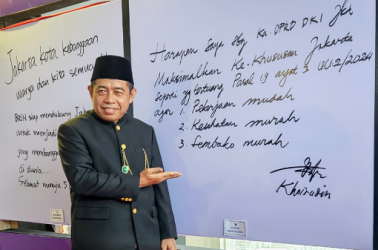 Jakarta kota kebanggaan
warga dan kita semua
BKN siap mendukung
untuk menjadi
yang membangga
di dunia...
Selamat menuju 5
Harapan Saya Sbg Ka DPRD DKI Jkt
Maksimalkan Ke-Khususan Jakarta
Seperti yg tertuang Pasal 19 ayat 3 UU 2/2024
agr 1. Pekerjaan mudah
2. Kesehatan murah
3. Sembako murah
Khoirudin